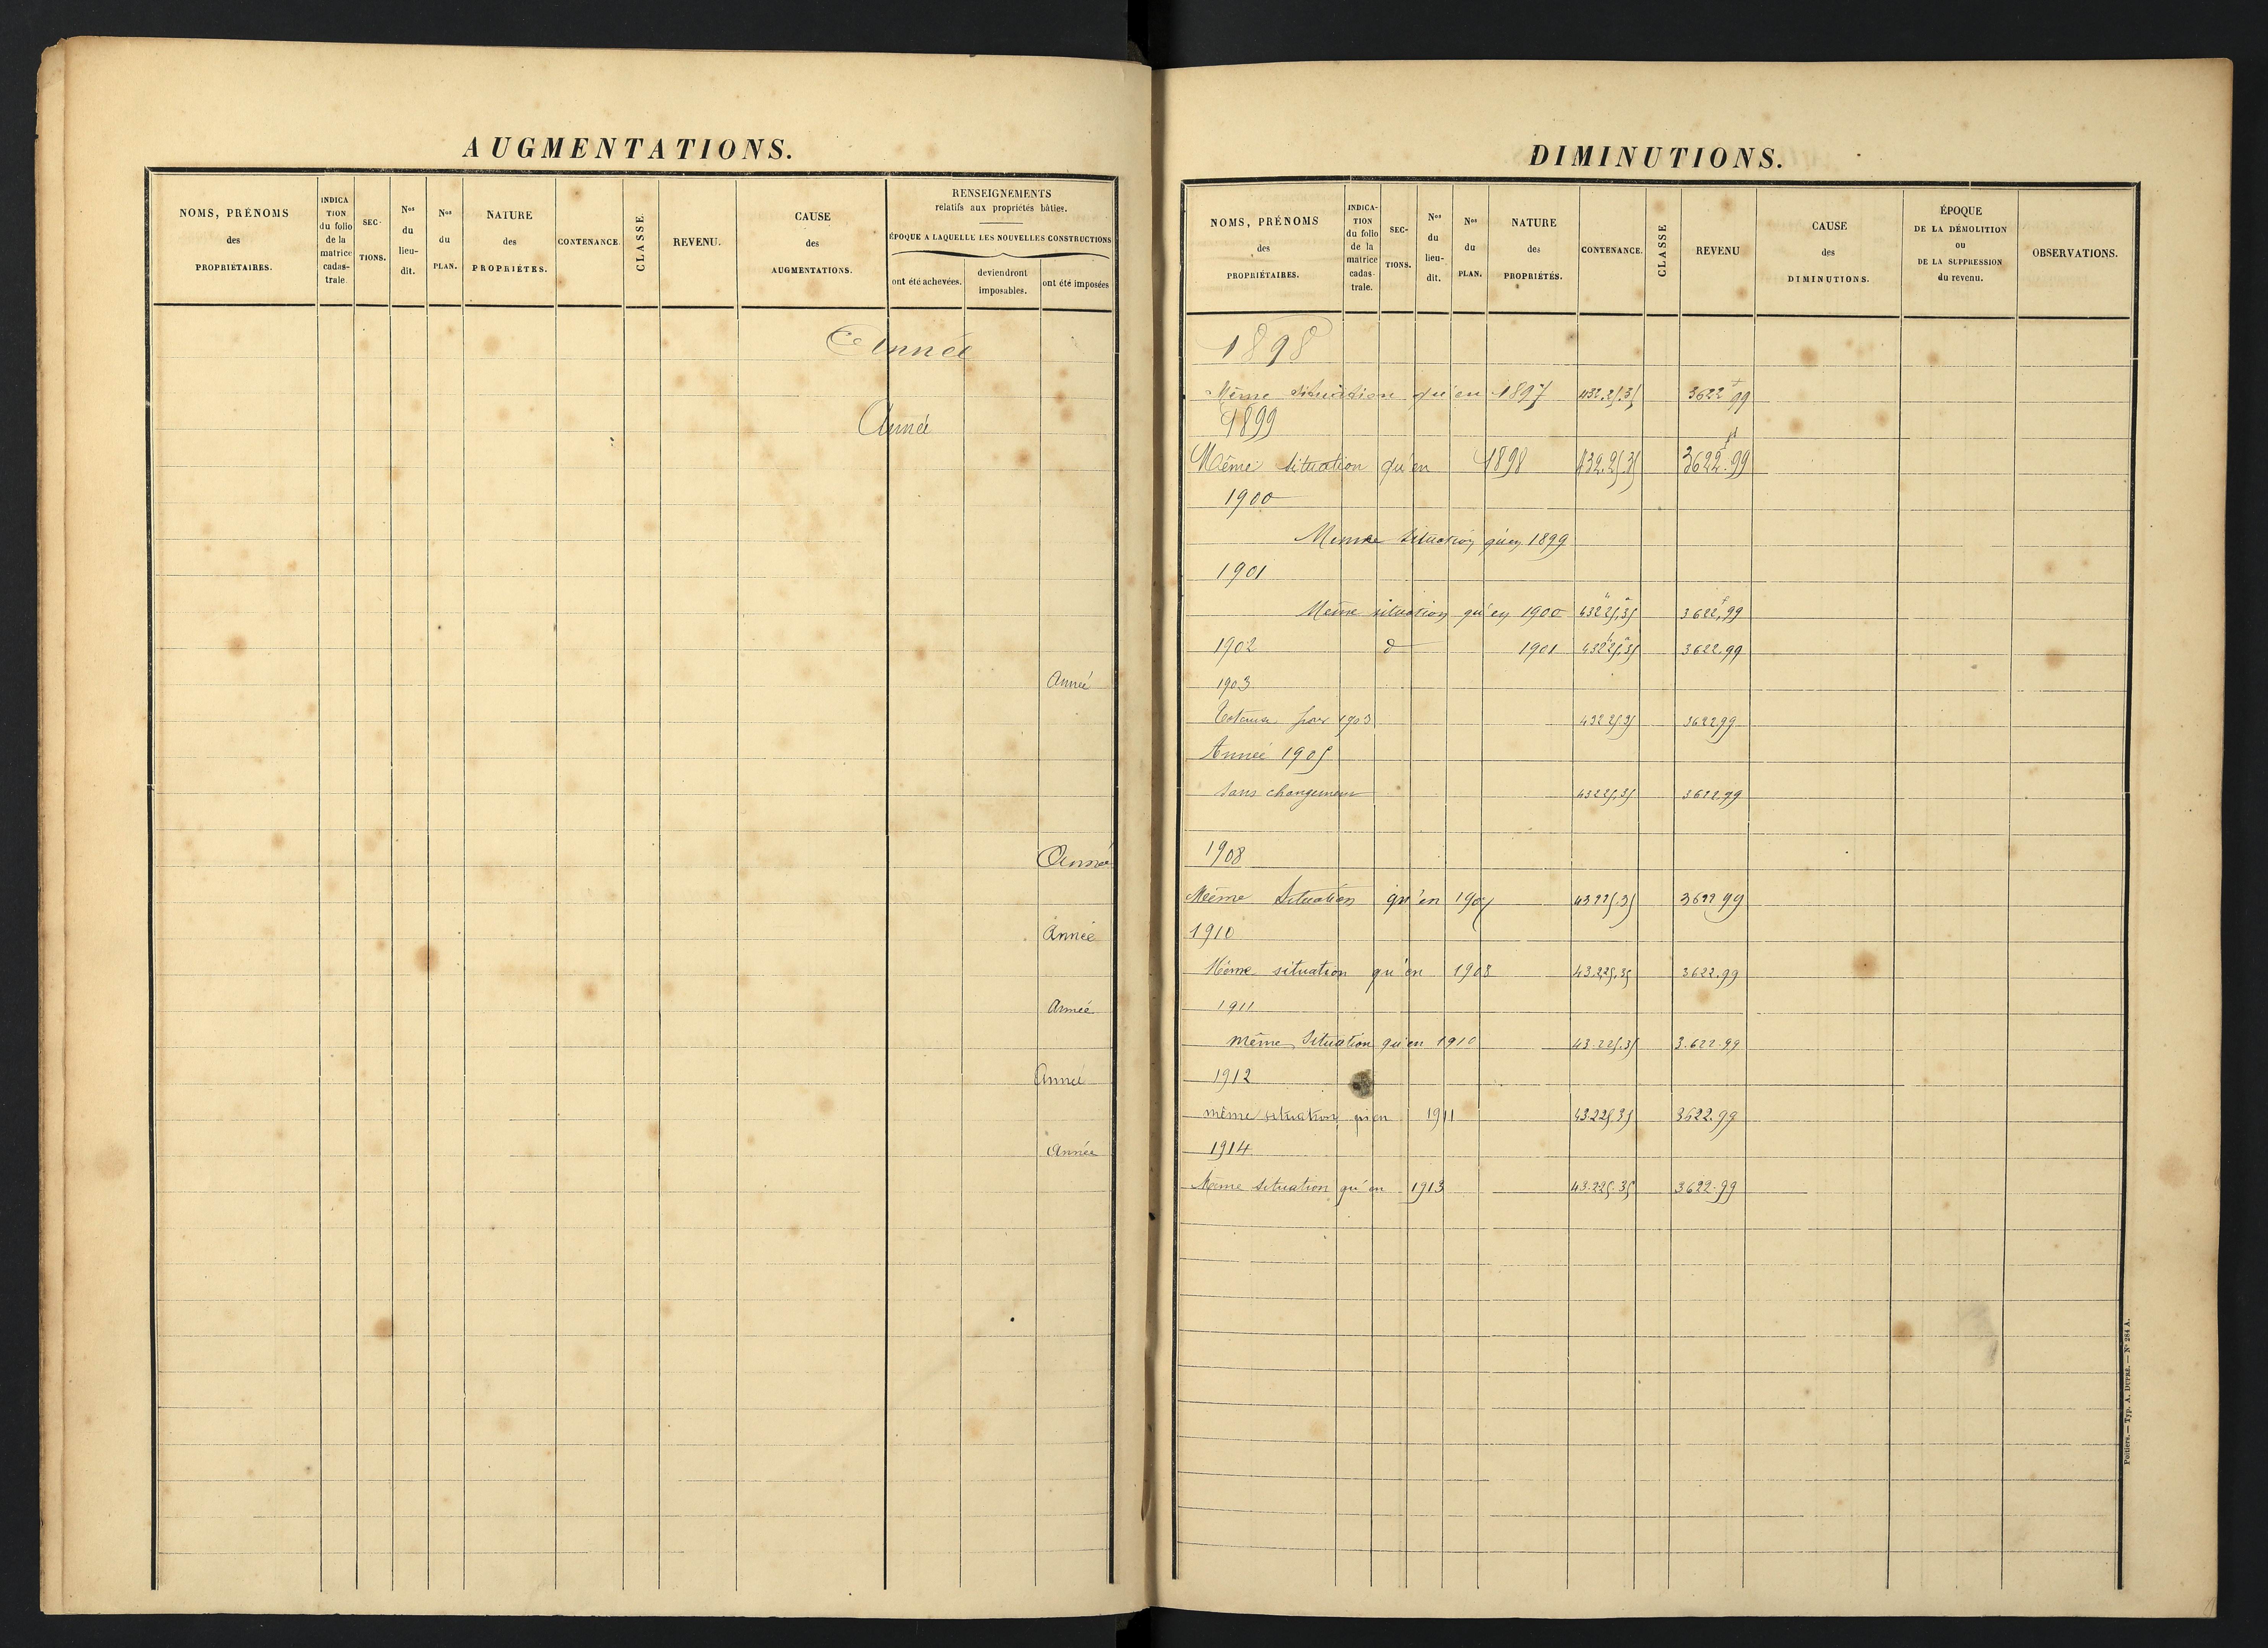 AUGMENTATIONS.
NOMS, PRÉNOMS des PROPRIÉTAIRES.
INDICA TION du folio de la matrice cadas- trale
SEC- TIONS.
Nos du lieu- dit.
Nos du PLAN.
NATURE des PROPRIÉTES.
CONTENANCE.
CLASSE.
REVENU.
CAUSE des AUGMENTATIONS.
RENSEIGNEMENTS
relatifs aux propriétés bâties.
ÉPOQUE A LAQUELLE LES NOUVELLES CONSTRUCTIONS
ont été achevées.
deviendront imposables.
ont été imposées
Année
Année
Année
Année
Année
Année
Année
Année
DIMINUTIONS.
NOMS, PRÉNOMS des PROPRIÉTAIRES.
INDICA- TION du folio de la matrice cadas- trale.
SEC- TIONS.
Nos du lieu- dit.
Nos du PLAN.
NATURE des PROPRIÉTÉS.
CONTENANCE.
CLASSE
REVENU
CAUSE des DIMINUTIONS.
ÉPOQUE DE LA DÉMOLITION ou DE LA SUPPRESSION du revenu.
OBSERVATIONS.
1898
Même situation qu'en 1897 432.25.35 3622 f 99
1899
Même situation qu'en 1898 432.25.35 3622.99
1900
Meme situation qu'en 1899
1901
Meme situation qu'en 1900 432 25.35 3622,f99
1902 d° 1901 432 25.35 3622.99
1903
Totaux pour 1903 432 25.35 3622.99
Année 1905
Sans changement 432 25.35 3622.99
1908
Même Situation qu'en 1907 432 25.35 3622 99
1910
Même situation qu'en 1908 43.225.35 3.622.99
1911
même Situation qu'en 1910 43.225.35 3.622.99
1912
même situation qu'en 1911 43.225.35 3622.99
1914
Même situation qu'en 1913 43.225.35 3622.99
Poitiers. — Typ. A. DUPRÉ. — N° 284 A.